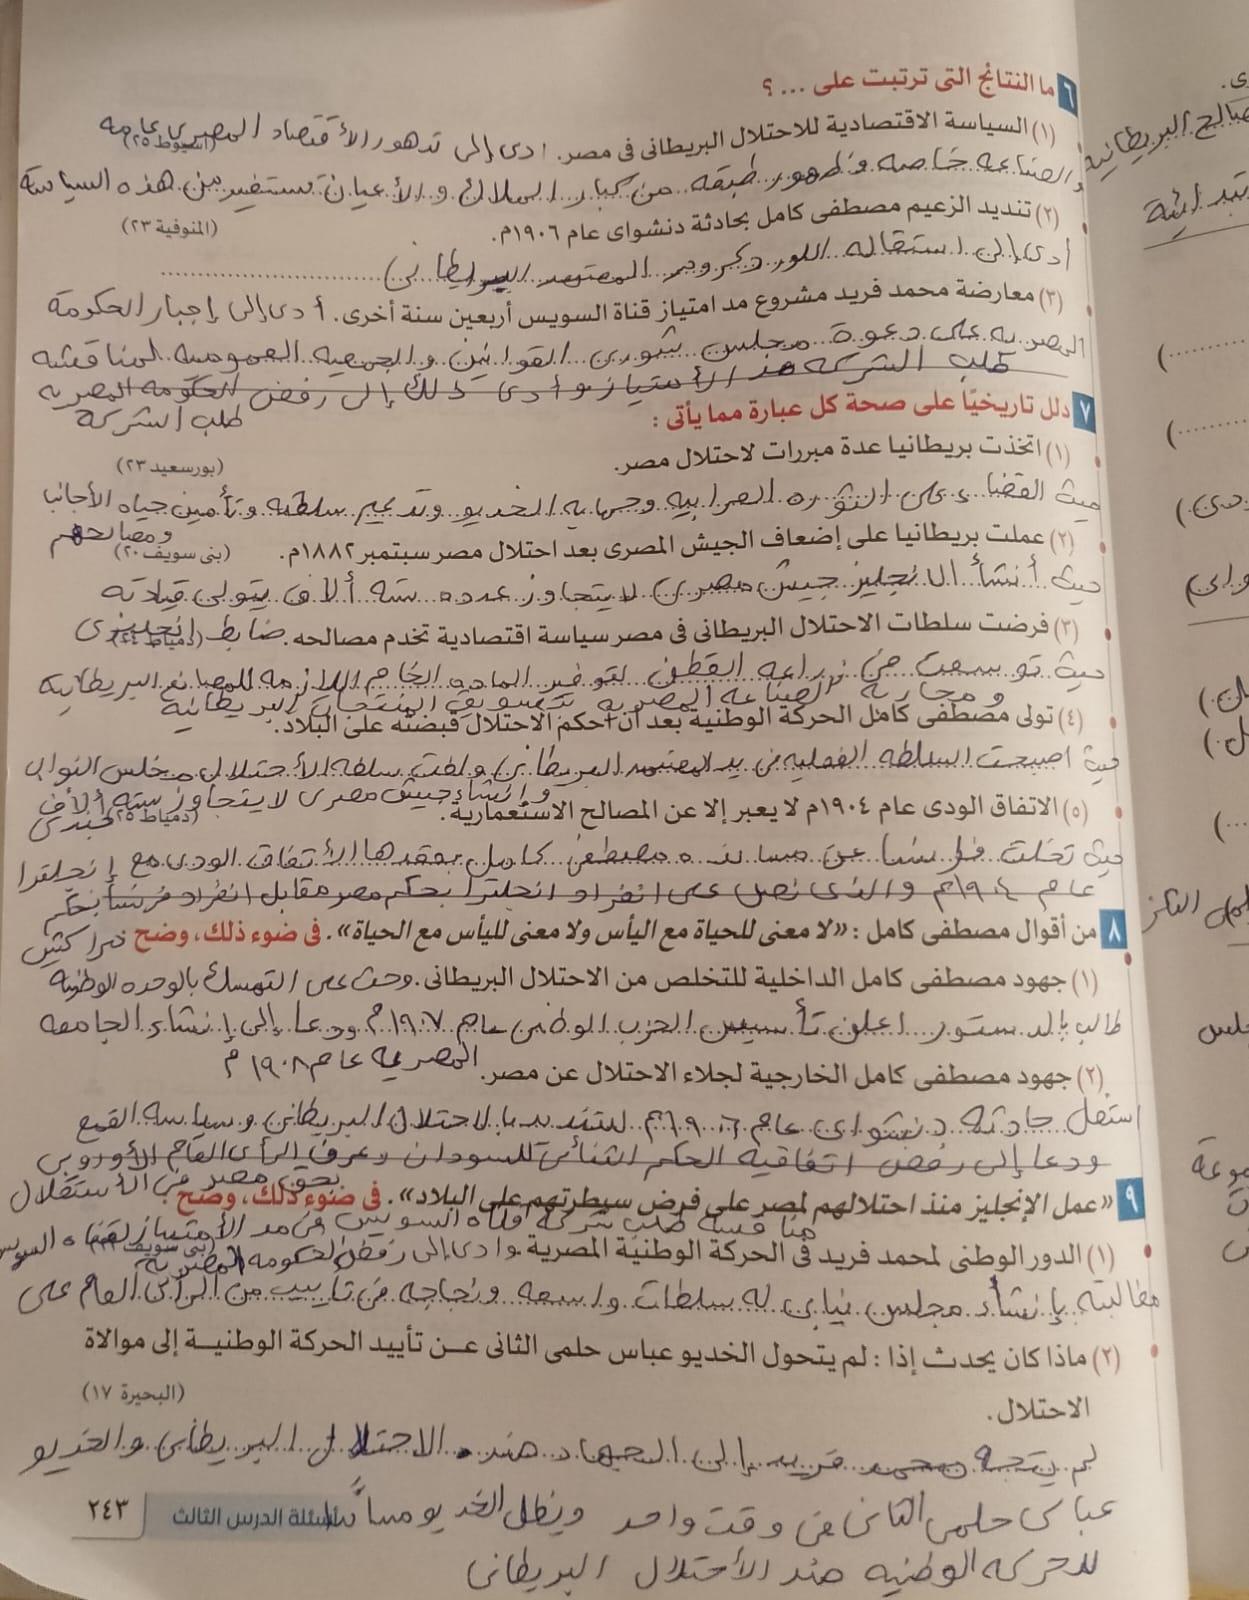 ٦ ما النتائج التى ترتبت على ... ؟
(١) السياسة الاقتصادية للاحتلال البريطانى فى مصر. ادى إلى تدهور الأقتصاد المصرى عامه
(أسيوط ٢٥)
والصناعه خاصه وظهور طبقه من كبار الملاك والأعيان تستفيد من هذه السياسة
(٢) تنديد الزعيم مصطفى كامل بحادثة دنشواى عام ١٩٠٦م.
(المنوفية ٢٣)
أدى إلى استقاله اللورد كرومر المعتمد البريطانى
(٣) معارضة محمد فريد مشروع مد امتياز قناة السويس أربعين سنة أخرى. أدى إلى إجبار الحكومة
المصريه على دعوة مجلس شورى القوانين والجمعيه العموميه لمناقشه
طلب الشركه مد الأمتياز وأدى ذلك إلى رفض الحكومه المصريه
طلب الشركة
٧ دلل تاريخيًا على صحة كل عبارة مما يأتى :
(١) اتخذت بريطانيا عدة مبررات لاحتلال مصر.
(بورسعيد ٢٣)
حيث القضاء على الثوره العرابيه وحمايه الخديو وتدعيم سلطته وتأمين حياه الأجانب
ومصالحهم
(٢) عملت بريطانيا على إضعاف الجيش المصرى بعد احتلال مصر سبتمبر ١٨٨٢م.
(بنى سويف ٢٠)
حيث أنشأ الانجليز جيش مصرى لايتجاوز عدده سته ألاف يتولى قيادته
(٣) فرضت سلطات الاحتلال البريطانى فى مصر سياسة اقتصادية تخدم مصالحه. ضابط انجليزى
(دمياط ٢٤)
حيث توسعت فى زراعه القطن لتوفير الماده الخام اللازمه للمصانع البريطانيه
ومحاربه الصناعه المصريه لتسويق المنتجات البريطانية
(٤) تولى مصطفى كامل الحركة الوطنية بعد أن أحكم الاحتلال قبضته على البلاد.
حيث اصبحت السلطه الفعليه فى يد المعتمد البريطانى ولغت سلطه الأحتلال مجلس النواب
وانشاء جيش مصرى لايتجاوز سته ألاف
جندى
(٥) الاتفاق الودى عام ١٩٠٤م لا يعبر إلا عن المصالح الاستعمارية.
(دمياط ٢٥)
حيث تخلت فرنسا عن مسانده مصطفى كامل بعقدها الأتفاق الودى مع إنجلترا
عام ١٩٠٤م والذى نص على انفراد انجلترا بحكم مصر مقابل انفراد فرنسا بحكم
مراكش
٨ من أقوال مصطفى كامل : «لا معنى للحياة مع اليأس ولا معنى لليأس مع الحياة». فى ضوء ذلك، وضح
(١) جهود مصطفى كامل الداخلية للتخلص من الاحتلال البريطانى. وحث على التمسك بالوحده الوطنية
طالب بالدستور اعلن تأسيس الحزب الوطنى عام ١٩٠٧م ودعا إلى إنشاء الجامعه
المصريه عام ١٩٠٨م
(٢) جهود مصطفى كامل الخارجية لجلاء الاحتلال عن مصر.
استغل حادثه دنشواى عام ١٩٠٦م للتنديد بالاحتلال البريطانى وسياسه القمع
ودعا إلى رفض اتفاقيه الحكم الثنائى للسودان وعرف الرأى العام الأوروبى
بحق مصر فى الأستقلال
٩ «عمل الإنجليز منذ احتلالهم لمصر على فرض سيطرتهم على البلاد». فى ضوء ذلك، وضح :
مناقشه طلب شركه قناه السويس فى مد الأمتياز لقناه السويس
(١) الدور الوطنى لمحمد فريد فى الحركة الوطنية المصرية. وادى إلى رفض الحكومه المصريه
مطالبته بإنشاء مجلس نيابى له سلطات واسعه ونجاحه فى تأليب الرأى العام على
(٢) ماذا كان يحدث إذا : لم يتحول الخديو عباس حلمى الثانى عن تأييد الحركة الوطنية إلى موالاة
الاحتلال.
(البحيرة ١٧)
لم يتجه محمد فريد إلى الجهاد ضد الاحتلال البريطانى والخديو
عباس حلمى الثانى فى وقت واحد ويظل الخديو مسانداً
للحركه الوطنيه ضد الأحتلال البريطانى
أسئلة الدرس الثالث
٢٤٣